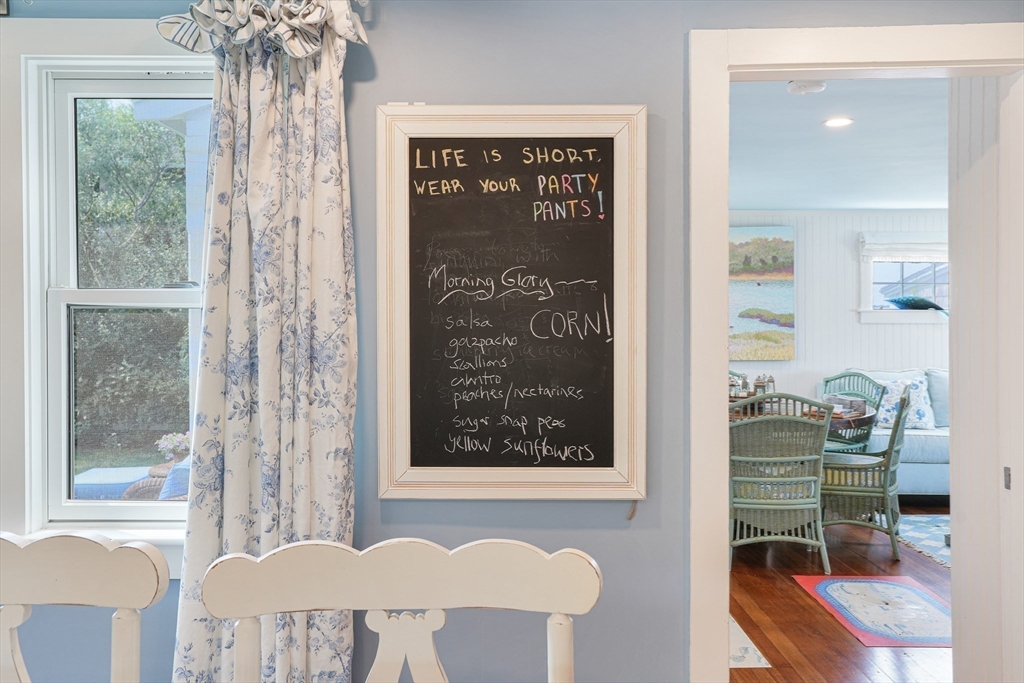 LIFE IS SHORT.
WEAR YOUR PARTY
PANTS!
Morning Glory
CORN!
salsa
gazpacho
scallions
cilantro
peaches/nectarines
sugar snap peas
yellow sunflowers